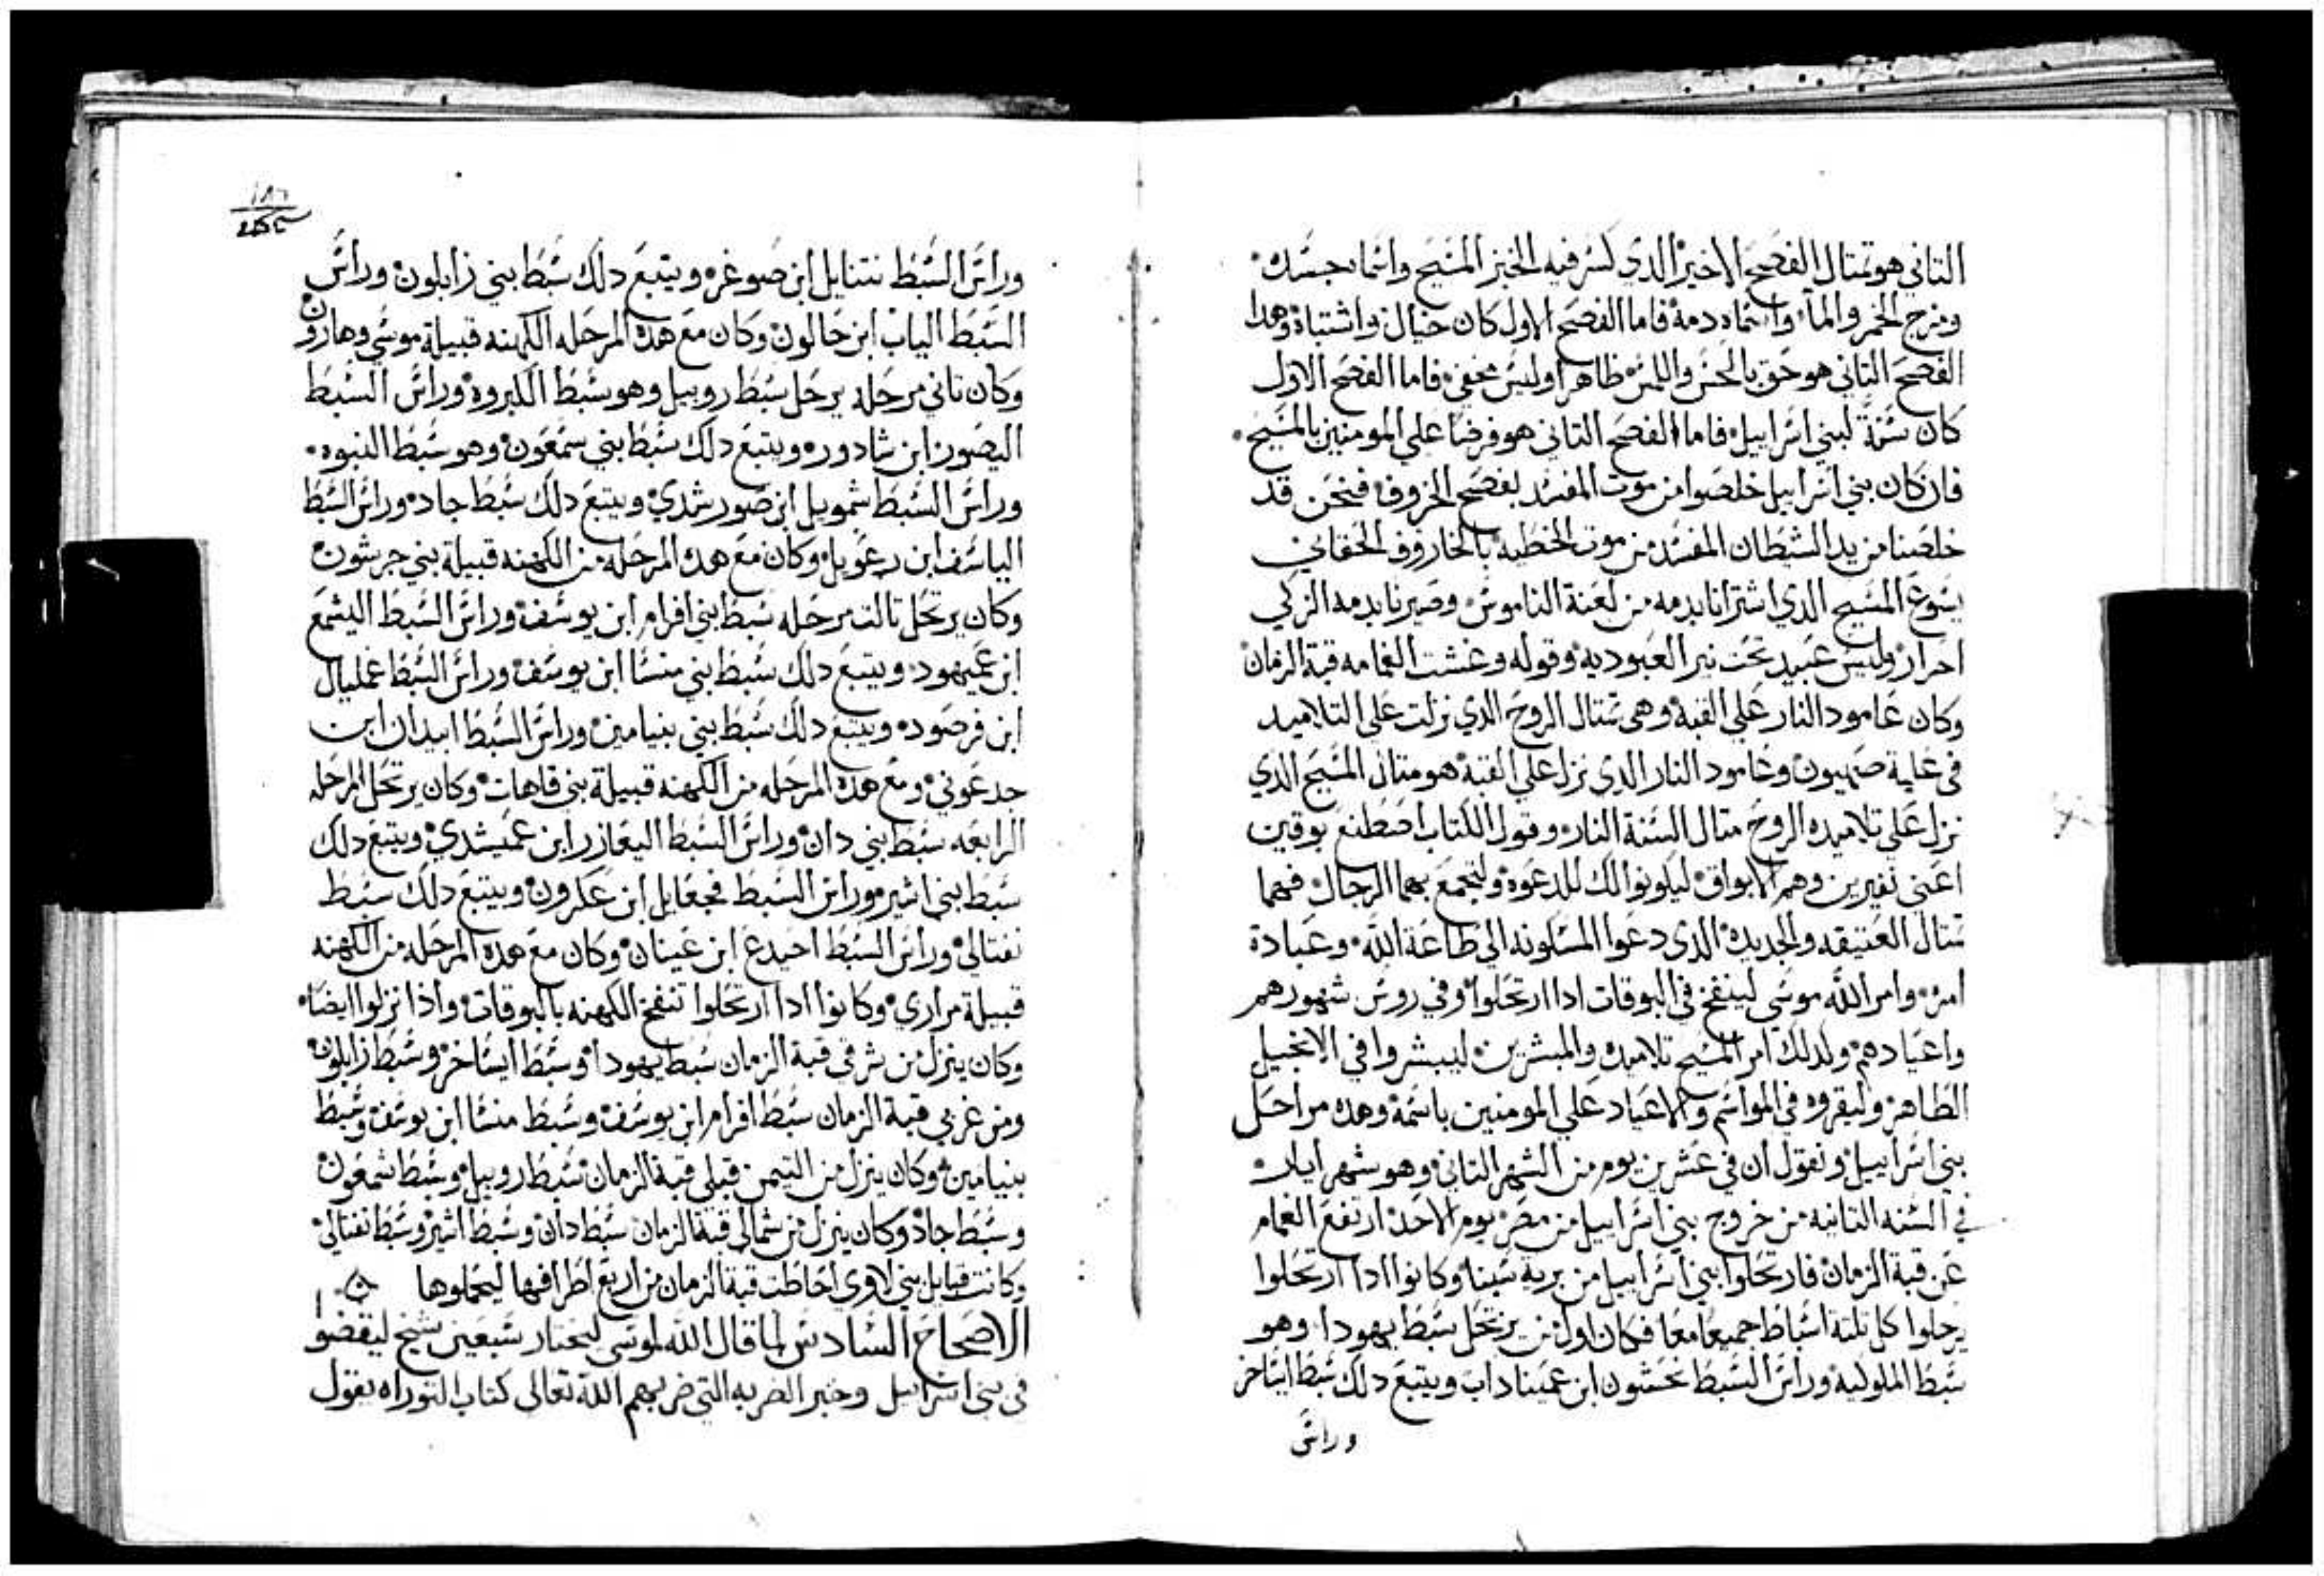 التاني هو تمتال الفصح الاخير الدي كسر فيه الخبز المسيح واسماه جسده
ومزج الخمر والمآ واسماه دمه فاما الفصح الاول كان خيال واشتباه وهدا
الفصح التاني هو حق بالحس واللمس ظاهرا وليس مخفي فاما الفصح الاول
كان سنة لبني اسراييل فاما الفصح التاني هو فرضا علي المومنين بالمسيح
فان كان بني اسراييل خلصوا من موت المفسد بفصح الخروف فنحن قد
خلصنا من يد الشيطان المفسد من موت الخطيه بالخاروف الحقاني
يسوع المسيح الدي اشترانا بدمه من لعنة الناموس وصيرنا بدمه الزكي
احرار وليس عبيد تحت نير العبوديه وقوله وغشت الغمامه قبة الزمان
وكان عامود النار علي القبه وهي متال الروح الدي نزلت علي التلاميد
في علية صهيون وعامود النار الدي نزل علي القبه هو متال المسيح الدي
نزل علي تلاميده الروح متال السنة النار وقول الكتاب اصطنع بوقين
اعني نفيرين وهم الابواق ليكونوا لك للدعوه ولتجمع بهما الرجال فهما
متال العتيقه والجديده الدي دعوا المسكونه الي طاعة الله وعبادة
امره وامر الله موسي لينفخ في البوقات ادا ارتحلوا وفي روس شهورهم
واعيادهم ولدلك امر المسيح تلاميده والمبشرين ليبشروا في الانجيل
الطاهر وليقروه في المواسم والاعياد علي المومنين باسمه وهده مراحل
بني اسراييل ونقول ان في عشرين يوم من الشهر التاني وهو شهر ايار
في السنه التانيه من خروج بني اسراييل من مصر يوم الاحد ارتفع الغمام
عن قبة الزمان فارتحلوا بني اسراييل من برية سينا وكانوا ادا ارتحلوا
يرحلوا كل تلتة اسباط جميعا معا فكان اول من يرتحل سبط يهودا وهو
سبط الملوكيه وراس السبط نحشون ابن عميناداب ويتبع دلك سبط ايساخر
وراس
وراس السبط نتنايل ابن صوغر ويتبع دلك سبط بني زابلون وراس
السبط الياب ابن حالون وكان مع هده المرحله الكهنه قبيلة موسي وهارون
وكان تاني مرحله يرحل سبط روبيل وهو سبط البكروه وراس السبط
اليصور ابن شادور ويتبع دلك سبط بني سمعون وهو سبط النبوه
وراس السبط شمويل ابن صورشدي ويتبع دلك سبط جاد وراس السبط
الياسف ابن رعويل وكان مع هده المرحله من الكهنه قبيلة بني جرشون
وكان يرتحل تالت مرحله سبط بني افرام ابن يوسف وراس السبط اليشمع
ابن عميهود ويتبع دلك سبط بني منسا ابن يوسف وراس السبط غمليال
ابن فرصوده ويتبع دلك سبط بني بنيامين وراس السبط ابيدان ابن
جدعوني ومع هده المرحله من الكهنه قبيلة بني قاهات وكان يرتحل المرحله
الرابعه سبط بني دان وراس السبط اليعازر ابن عميشدي ويتبع دلك
سبط بني اشير وراس السبط فجعايل ابن عكرون ويتبع دلك سبط
نفتالي وراس السبط احيدع ابن عينان وكان مع هده المرحله من الكهنه
قبيلة مراري وكانوا ادا ارتحلوا تنفخ الكهنه بالبوقات واذا نزلوا ايضا
وكان ينزل من شرقي قبة الزمان سبط يهودا وسبط ايساخر وسبط زابلون
ومن غربي قبة الزمان سبط افرام ابن يوسف وسبط منسا ابن يوسف وسبط
بنيامين وكان ينزل من التيمن قبلي قبة الزمان سبط روبيل وسبط شمعون
وسبط جاد وكان ينزل من شمالي قبة الزمان سبط دان وسبط اشير وسبط نفتالي
وكانت قبايل بني لاوي احاطت قبة الزمان من اربع اطرافها ليحملوها
الاصحاح السادس لما قال الله لموسي ليختار سبعين شيخ ليقضوا
في بني اسراييل وخبر الضربه التي ضربهم الله تعالي كتاب التوراه يقول